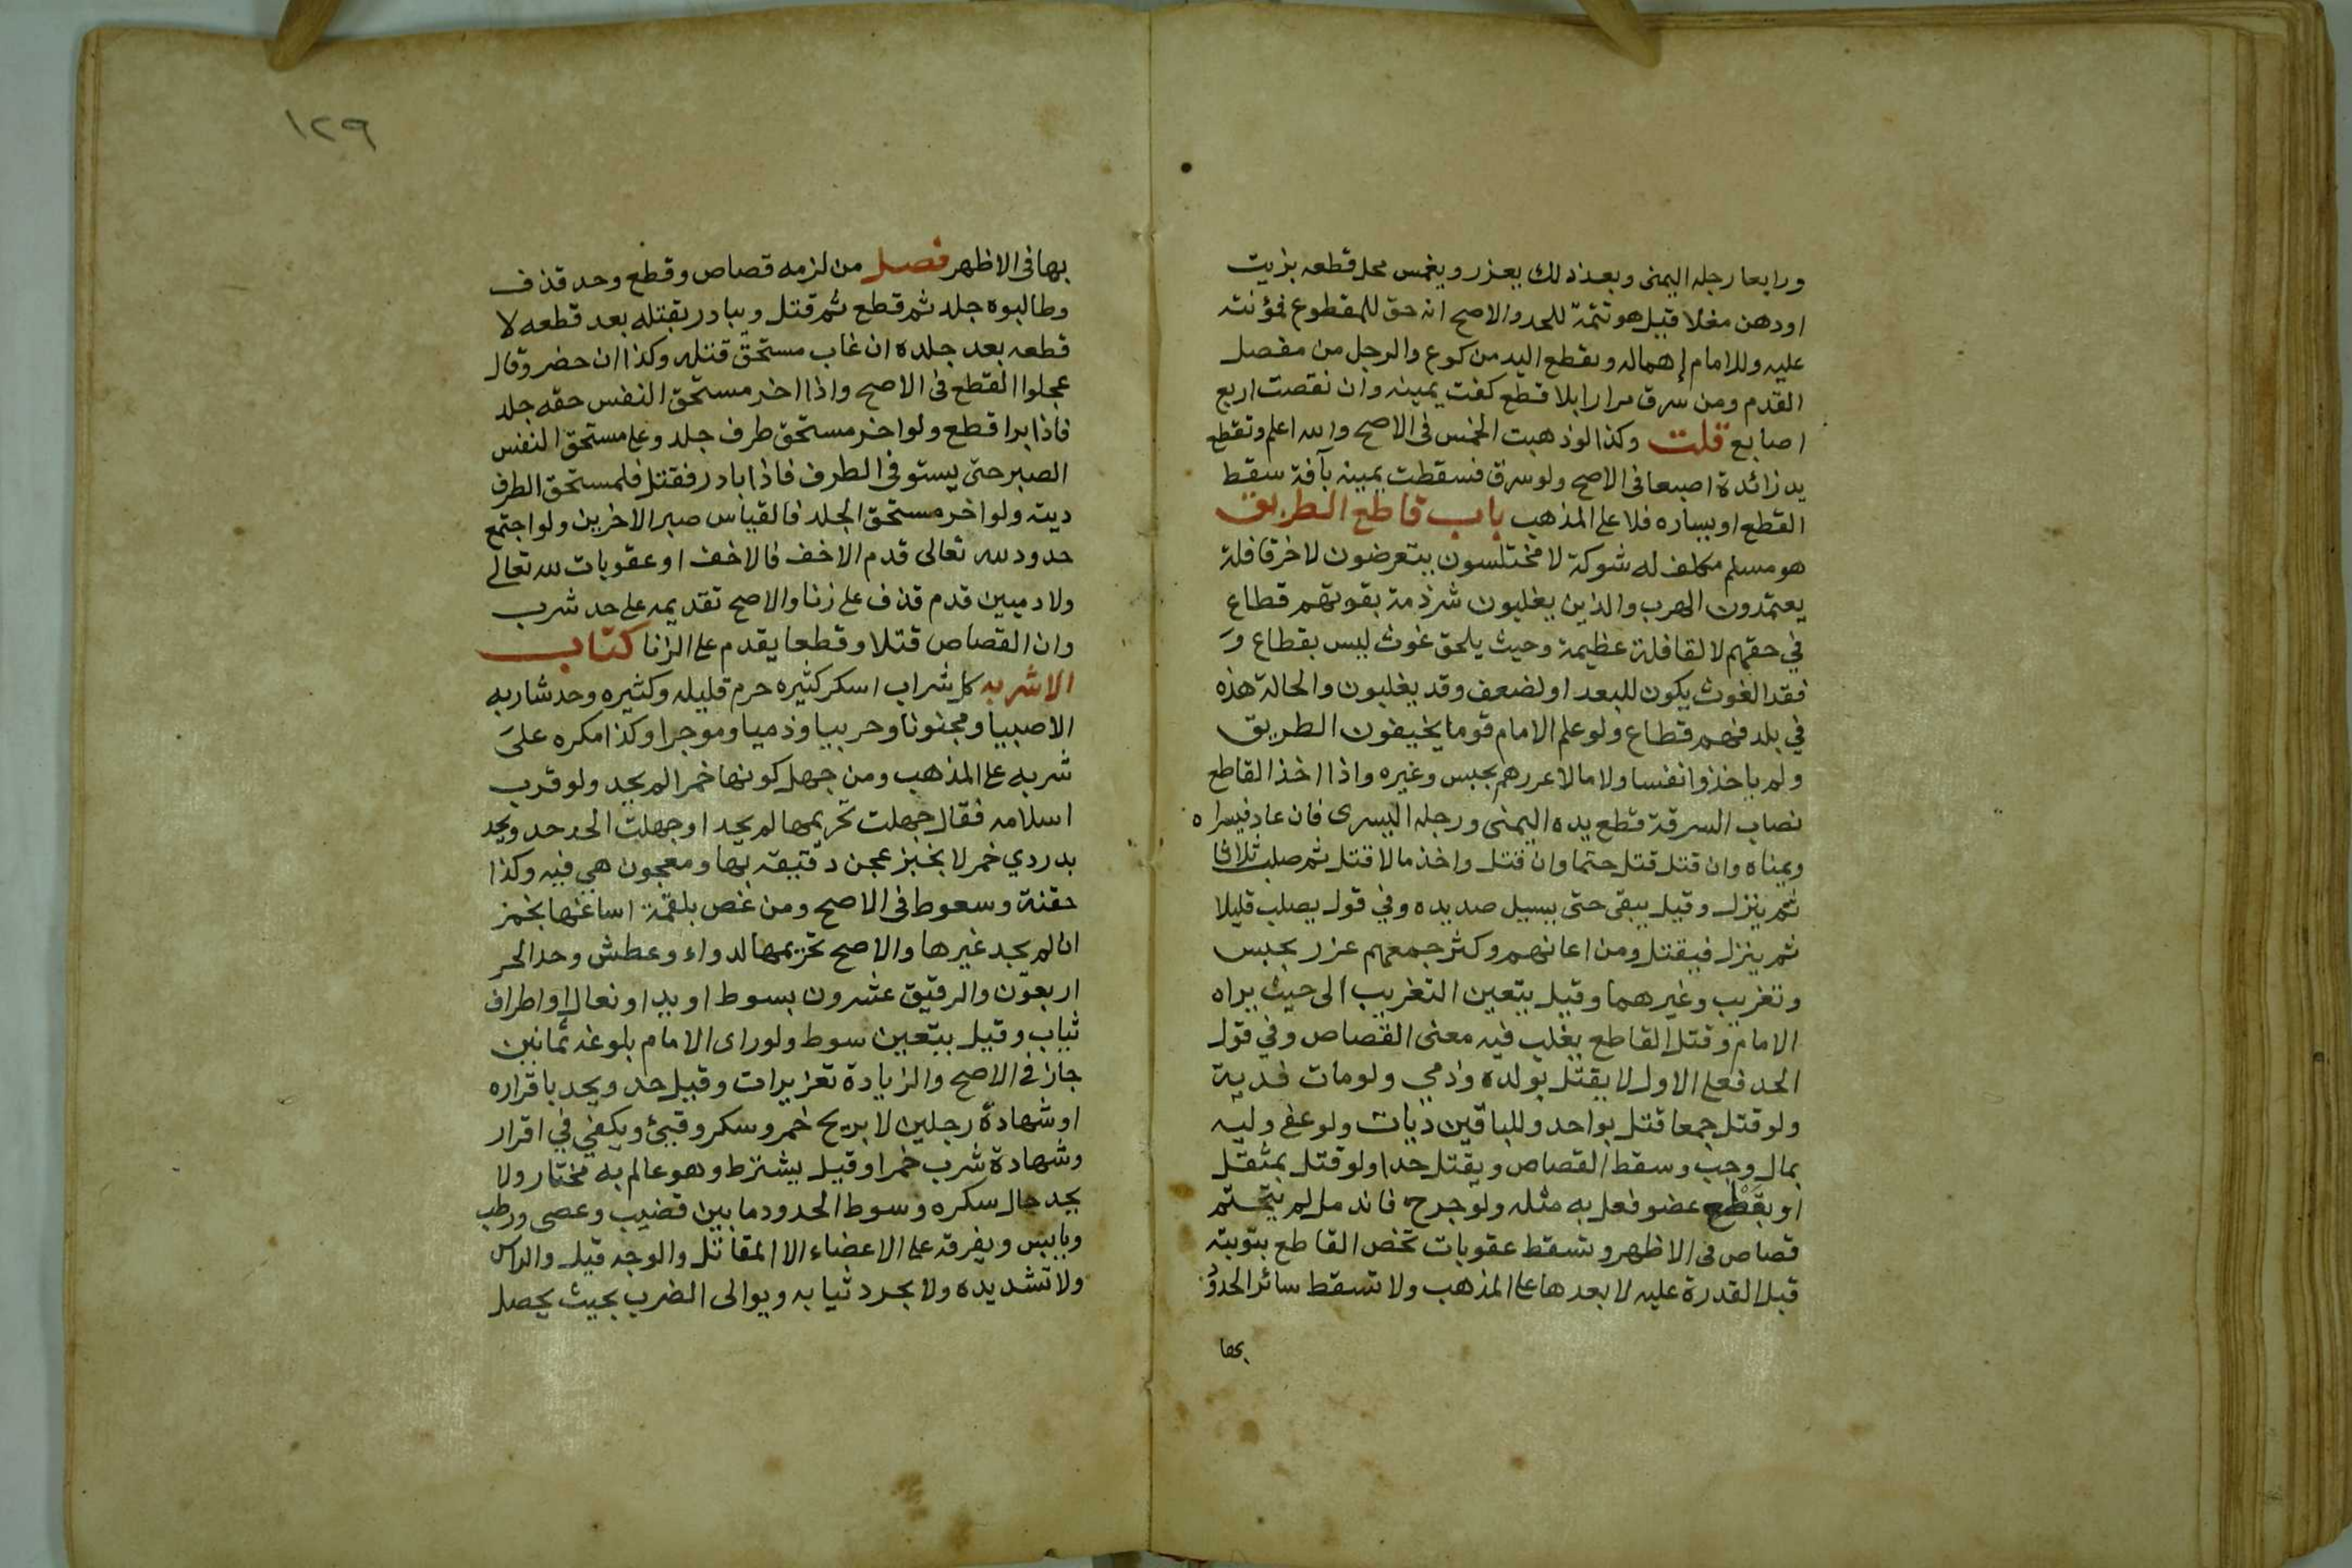 ورابعا رجله اليمنى وبعد ذلك يعزر ويغمس محل قطعه بزيت
اودهن مغلا قيل هو تتمة للحد والاصح انه حق للمقطوع فمؤنته
عليه وللامام إهماله وتقطع اليد من كوع والرجل من مفصل
القدم ومن سرق مرارا بلا قطع كفت يمينه وان نقصت اربع
اصابع قلت وكذا لو ذهبت الخمس في الاصح والله اعلم وتقطع
يد زائدة اصبعا في الاصح ولو سرق فسقطت يمينه بآفة سقط
القطع او يساره فلا على المذهب باب قاطع الطريق
هو مسلم مكلف له شوكة لا مختلسون يتعرضون لاخر قافلة
يعتمدون الهرب والذين يغلبون شرذمة بقوتهم قطاع
في حقهم لا لقافلة عظيمة وحيث يلحق غوث ليس بقطاع و
فقد الغوث يكون للبعد او لضعف وقد يغلبون والحالة هذه
في بلد فهم قطاع ولو علم الامام قوما يخيفون الطريق
ولم ياخذوا نفسا ولا مالا عزرهم بحبس وغيره واذا اخذ القاطع
نصاب السرقة قطع يده اليمنى ورجله اليسرى فان عاد فيسراه
ويمناه وان قتل قتل حتما وان قتل واخذ مالا قتل ثم صلب ثلاثا
ثم ينزل وقيل يبقى حتى يسيل صديده وفي قول يصلب قليلا
ثم ينزل فيقتل ومن اعانهم وكثر جمعهم عزر بحبس
وتغريب وغيرهما وقيل يتعين التغريب الى حيث يراه
الامام وقتل القاطع يغلب فيه معنى القصاص وفي قول
الحد فعلى الاول لا يقتل بولده وذمي ولو مات فدية
ولو قتل جمعا قتل بواحد وللباقين ديات ولو عفى وليه
بمال وجب وسقط القصاص ويقتل حدا ولو قتل بمثقل
او بقطع عضو فعل به مثله ولو جرح فاندمل لم يتحتم
قصاص في الاظهر وتسقط عقوبات تخص القاطع بتوبته
قبل القدرة عليه لا بعدها على المذهب ولا تسقط سائر الحدود
بها
١٢٩
بها في الاظهر فصل من لزمه قصاص وقطع وحد قذف
وطالبوه جلد ثم قطع ثم قتل ويبادر بقتله بعد قطعه لا
قطعه بعد جلده ان غاب مستحق قتله وكذا ان حضر وقال
عجلوا القطع في الاصح واذا اخر مستحق النفس حقه جلد
فاذا برا قطع ولو اخر مستحق طرف جلد وعلى مستحق النفس
الصبر حتى يستوفي الطرف فاذا بادر فقتل فلمستحق الطرف
ديته ولو اخر مستحق الجلد فالقياس صبر الاخرين ولو اجتمع
حدود لله تعالى قدم الاخف فالاخف او عقوبات لله تعالى
ولادميين قدم قذف على زنا والاصح تقديمه على حد شرب
وان القصاص قتلا وقطعا يقدم على الزنا كتاب
الاشربه كل شراب اسكر كثيره حرم قليله وكثيره وحد شاربه
الا صبيا ومجنونا وحربيا وذميا وموجرا وكذا مكره على
شربه على المذهب ومن جهل كونها خمرا لم يحد ولو قرب
اسلامه فقال جهلت تحريمها لم يحد او جهلت الحد حد ويحد
بدردي خمر لا بخبز عجن دقيقه بها ومعجون هي فيه وكذا
حقنة وسعوط في الاصح ومن غص بلقمة اساغها بخمر
ان لم يجد غيرها والاصح تحريمها لدواء وعطش وحد الحر
اربعون والرقيق عشرون بسوط او يد او نعال او اطراف
ثياب وقيل يتعين سوط ولو راى الامام بلوغه ثمانين
جاز في الاصح والزيادة تعزيرات وقيل حد ويحد باقراره
او شهادة رجلين لا بريح خمر وسكر وقيئ ويكفي في اقرار
وشهادة شرب خمرا وقيل يشترط وهو عالم به مختار ولا
يحد حال سكره وسوط الحدود ما بين قضيب وعصى ورطب
ويابس ويفرقه على الاعضاء الا المقاتل والوجه قيل والراس
ولا تشد يده ولا يجرد ثيابه ويوالى الضرب بحيث يحصل